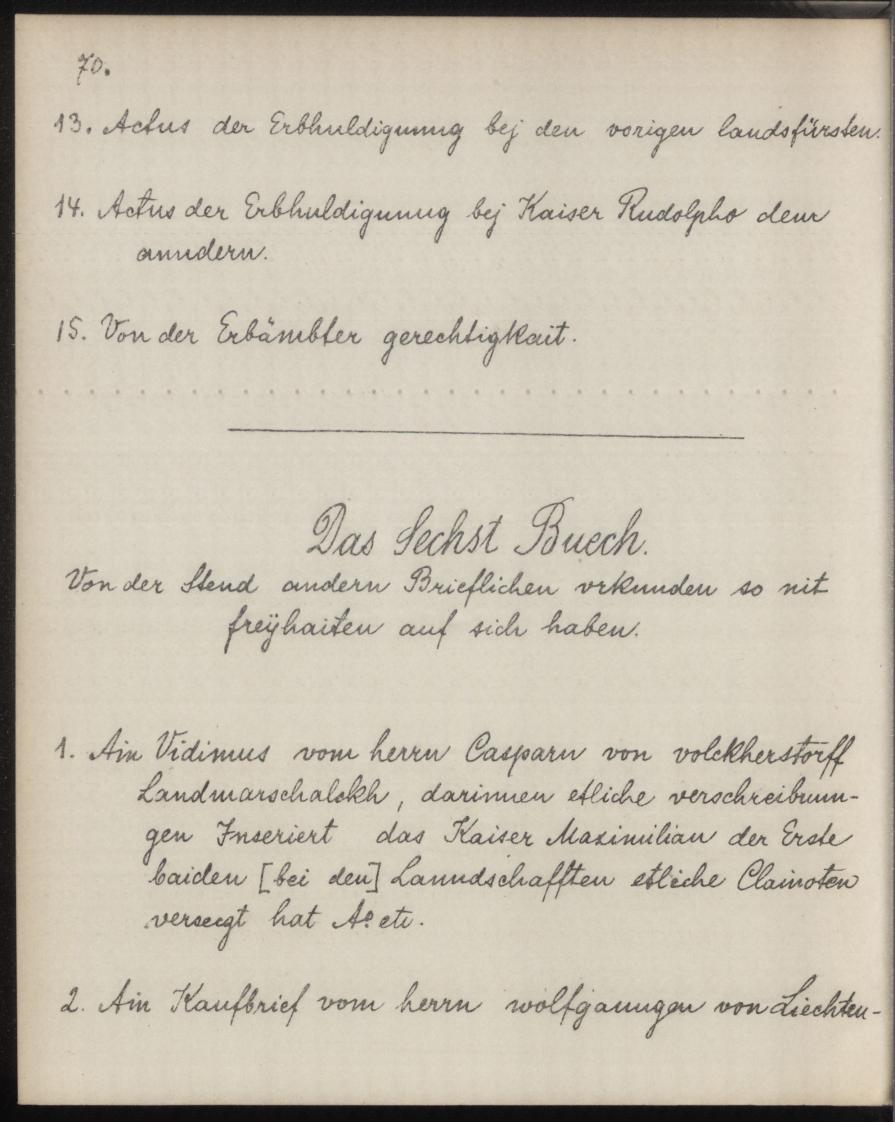 70.
13. Actus der Erbhuldigunng bej den vorigen landsfürsten.
14. Actus der Erbhuldigunng bej Kaiser Rudolpho dem
anndern.
15. Von der Erbämbter gerechtigkait.
Das Sechst Buech.
Von der Stend andern Brieflichen vrkunden so nit
freÿhaiten auf sich haben.
1. Ain Vidimus vom herrn Casparn von volckherstorff
Landmarschalckh, darinnen etliche verschreibunn-
gen Inseriert das Kaiser Maximilian der Erste
baiden [bei den] Lanndschafften etliche Clainoten
verseczt hat Aº etc.
2. Ain Kaufbrief vom herrn wolfganngen von Liechten-